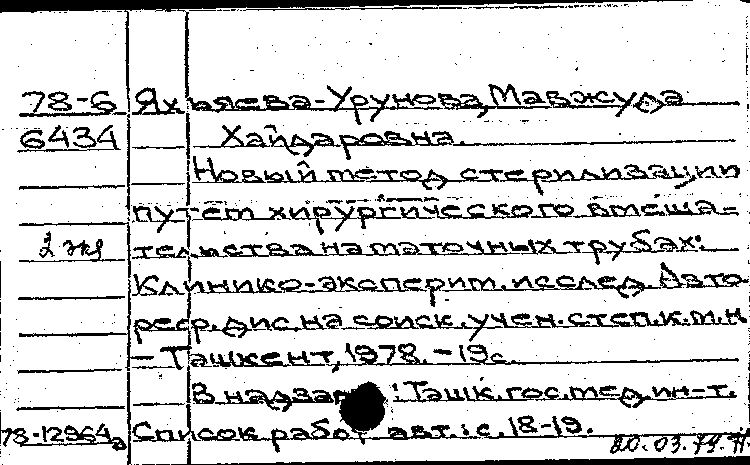 78-6 Яхъяева-Урунова, Мавжуда
6434 Хайдаровна.
Новый метод стерилизации
путём хирургического вмеша-
2 экз тельства на маточных трубах:
Клинико-эксперим. исслед. Авто
реф. дис. на соиск. учен. степ. к.м.н
- Ташкент, 1978. - 19с.
В надзаг.: Ташк. гос. мед. ин-т.
78-12964а Список работ авт.: с. 18-19.
20.03.79